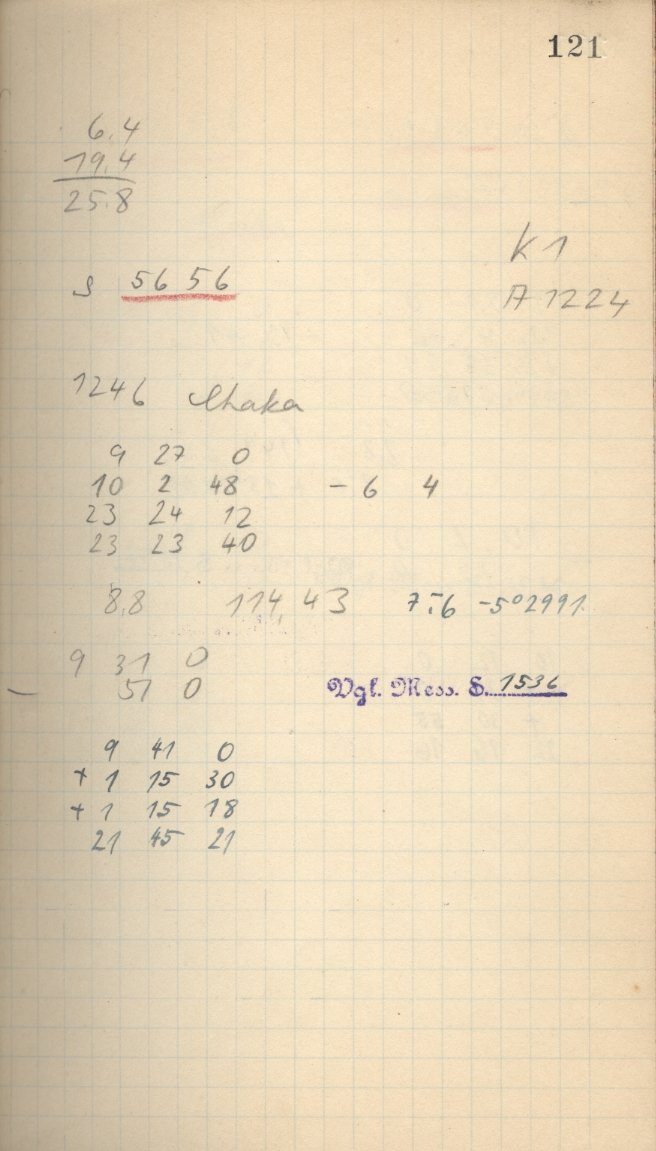 121
6.4
19.4
25.8
K 1
S 5656
A 1224
1246 Chaka
9 27 0
10 2 48 - 6 4
23 24 12
23 23 40
8.8 114.43 7.6 -5°2991
9 31 0
- 51 0
Vgl. Mess. S. 1536
9 41 0
+ 1 15 30
+ 1 15 18
21 45 21